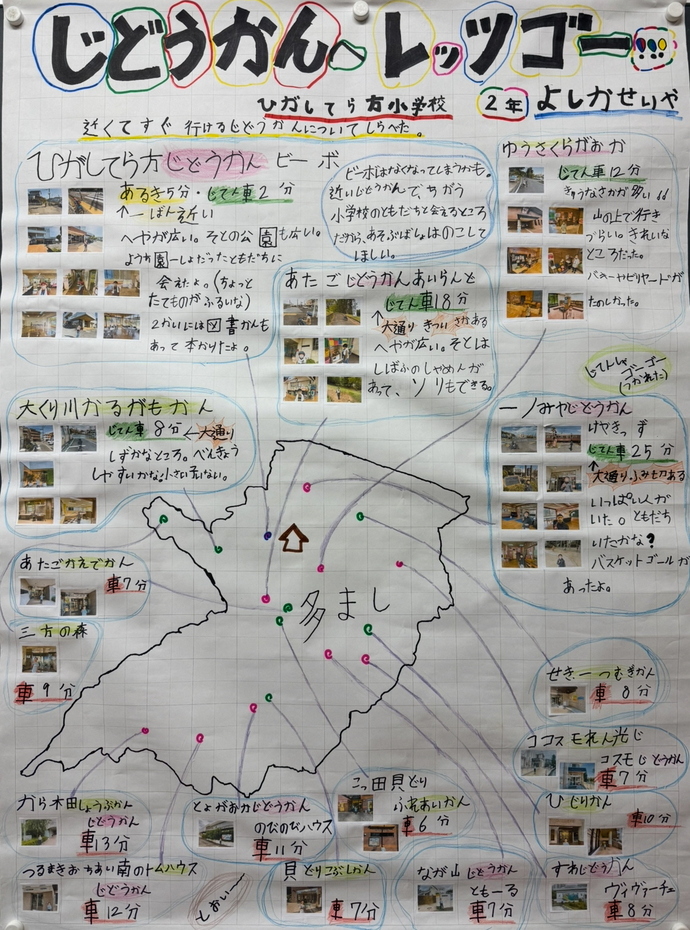 じどうかんへレッツゴー!!!
ひがしてら方小学校
2年 よしかせいや
近くてすぐ行けるじどうかんについてしらべた。
ひがしてら方じどうかん ピーポ
あるき5分・じてん車2分
↑一ばん近い
へやが広い。そとの公園も広い。
ようち園一しょだったともだちに
会えたよ。(ちょっと
たてものがふるいな)
2かいには図書かんも
あって本かりたよ。
ピーポはなくなってしまうかも。
近いじどうかんで、ちがう
小学校のともだちと会えるところ
だから、あそぶばしょはのこして
ほしい。
ゆうさくらがおか
じてん車12分
きゅうなさかが多い
山の上で行き
づらい。きれいな
ところだった。
バスケやビリヤードが
たのしかった。
あたごじどうかんあいらんど
じてん車18分
↑
大通り きついさかある
へやが広い。そとは
しばふのしゃめんが
あって、ソリもできる。
じてんしゃ
ゴーゴー
(つかれた)
大くり川かるがもかん
じてん車8分←大通り
しずかなところ。べんきょう
しやすいかな。小さい子いない。
一ノみやじどうかん
けやきっず
じてん車25分
↑
大通り、ふみ切ある
いっぱい人が
いた。ともだち
いたかな?
バスケットゴールが
あったよ。
あたごかえでかん
車7分
三方の森
車9分
多まし
せきーつむぎかん
車8分
ココスモれん光じ
コスモじどうかん
車7分
から木田しょうぶかん
じどうかん
車13分
とよがおかじどうかん
のびのびハウス
車11分
こっ田貝どり
ふれあいかん
車6分
ひじりかん
車10分
つるまきおちあい南のトムハウス
じどうかん
車12分
とおいー
貝どりこぶしかん
車7分
なが山じどうかん
ともーる
車7分
すわじどうかん
ヴィヴァーチェ
車8分